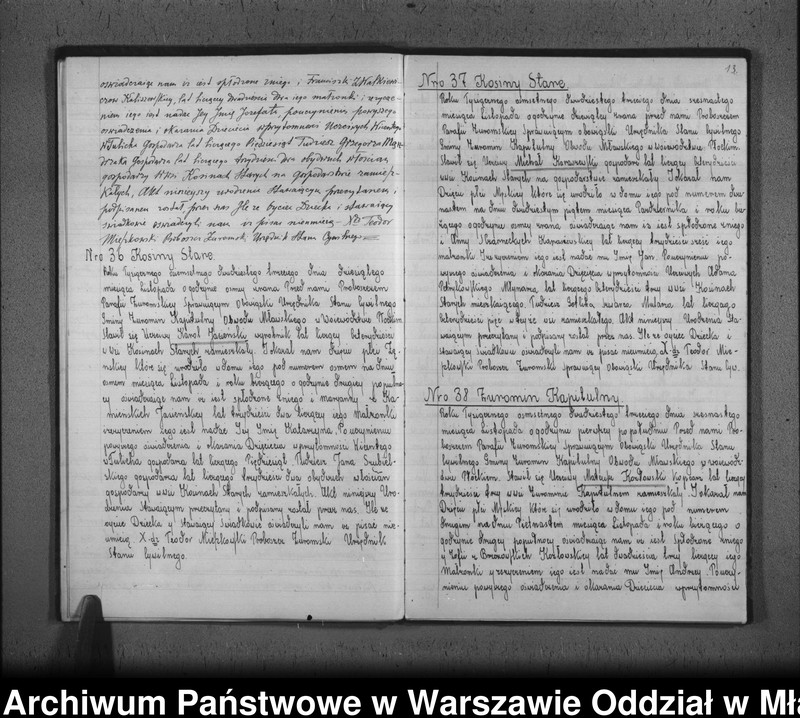 oświadczając nam iż jest spłodzone z niego i Franciszki z
lat liczącey dwadzieścia dwa jego małżonki i życze-
niem jego jest nadać Jey Imię Jozefata pouczynieniu powyższego
oświadczenia i okazaniu Dziecięcia w przytomności Uczciwych Wicentego
Tulicha Gospodarza lat liczącego Piędziesiąt Tudzież Grzegorza
Gospodarza lat liczącego trzydzieści dwa obydwuch włościan
gospodarzy wsi Kosinach Starych na gospodarstwie zamiesz-
kałych, Akt ninieyszy urodzenia Stawaiącym przeczytaném i
podpisanem został przez nas Jle że oyciec Dziecki i stawaiący
świadkowie oświadczyli nam iż pisać nieumieią XD Teodor
Mieszkowski Proboszcz Żuromski Urzędnik Stanu Cywilnego
Nro 36 Kosiny Stare
Roku Tysięcznego osimsetnego dwudziestego trzeciego dnia dziesiątego
miesiąca Listopada o godzinie osmey zrana Przed nami Proboszczem
Parafii Żuromskiey Sprawuiącym obowiązki Urzędnika Stanu Cywilnego
Gminy Żuromin Kapitulny Obwodu Mławskiego w Wojewodztwie Płockim
Stawił się Uczciwy Karol Jasienski wyrobnik lat liczący czterdzieści
i wsi Kosinach Starych zamieszkały. I okazał nam Dziecię płci Żę-
nskiey które się urodziło w domu Jego pod numerem osmem na dniu
osmem miesiąca Listopada i roku bieżącego o godzynie drugiey popołno-
cy oświadczaiąc nam iż jest spłodzone zniego i Maryanny z Ka-
mienskich Jasienskiey lat trzydzieści dwa liczącey iego Małżonki
zzyczeniem Jego jest nadać Jey Imię Katarzyna, Po uczynieniu
powyżego oświadczenia i okazania Dziecięcia w przytomności Wicentego
Tulicha gospodarza lat liczącego Piędziesiąt, Tudzież Jana
gospodarza lat liczącego trzydzieści dwa obydwuch włościan
gospodarzy wsi Kosinach Starych zamieszkałych. Akt ninieyszy Uro-
dzenia Stawaiącym przeczytany i podpisany został przez nas. Jle że
oyciec Dziecka y Stawaiący Swiadkowie oświadczyli nam iż pisać nie-
umieią X-dz Teodor Mieszkowski Proboszcz Żuromski Urzędnik
Stanu Cywilnego.
13.
Nro 37 Kosiny Stare
Roku Tysięcznego osimsetnego dwudziestego trzeciego dnia szesnastego
miesiąca Listopada o godzynie dziewiątey zrana przed nami Proboszczem
Parafii Żuromskiey Sprawuiącym obowiązki Urzędnika Stanu Cywilnego
Gminy Żuromin Kapitulny Obwodu Mławskiego w wojewodztwie Płockim
Stawił się Uczciwy Michał Karaszewski gospodarz lat liczący czterdzieści
wsi Kosinach Starych na gospodarstwie zamieszkały I okazał nam
Dziecię płci Męskiey które się urodziło w domu iego pod numerem dwa-
nastem na dniu dwudziestym piątem miesiąca Pazdziernika i roku bie-
żącego o godzynie osmey zrana oświadczaiąc nam iż jest spłodzone zniego
i Anny lat liczącey trzydzieści sześć iego
małżonki Izzyczeniem iego jest nadać mu Imię Jan. Pouczynieniu po-
wyżego oświadczenia i okazania Dziecięcia w przytomności Uczciwych Adama
Młynarza lat liczącego czterdzieści trzy wsi Kosinach
Starych mieszkaiącego. Tudzież Mularza lat liczącego
czterdzieści pięć w teyże wsi zamieszkałego. Akt ninieyszy Urodzenia Sta-
waiącym przeczytany i podpisany został przez nas. Jle że oyciec Dziecka i
stawaiący świadkowie oświadczyli nam iż pisać nieumieią X-dz Teodor Mie-
szkowski Proboszcz Żuromski sprawuiący Obowiązki Urzędnika Stanu Cyw.
Nro 38 Żuromin Kapitulny.
Roku Tysięcznego osimsetnego dwudziestego trzeciego dnia szesnastego
miesiąca Listopada o godzynie pierwszey popołudniu Przed nami Pro-
boszczem Parafii Żuromskiey Sprawuiącym Obowiązki Urzędnika Stanu
Cywilnego Gminy Żuromin Kapitulny Obwodu Mławskiego w wojewodz-
twie Płockiem. Stawił się Uczciwy Mateusz Kozłowski lat liczący
trzydzieści trzy wsi Żurominie Kapitulnem zamieszkały I okazał nam
Dziecię płci Męskiey które się urodziło w domu iego pod numerem
drugim na dniu Piętnastem miesiąca Listopada i roku bieżącego o
godzynie drugiey popułnocy oświadczaiąc nam iż jest spłodzone zniego
y Zofii z Kozłowskiey lat dwadzieścia trzy liczącey iego
Małżonki y zzyczeniem iego jest nadać mu Imię Andrzey. Po uczy-
nieniu powyżego oświadczenia i okazania Dziecięcia w przytomności
Archiwum Państwowe w Warszawie Oddział w Mła